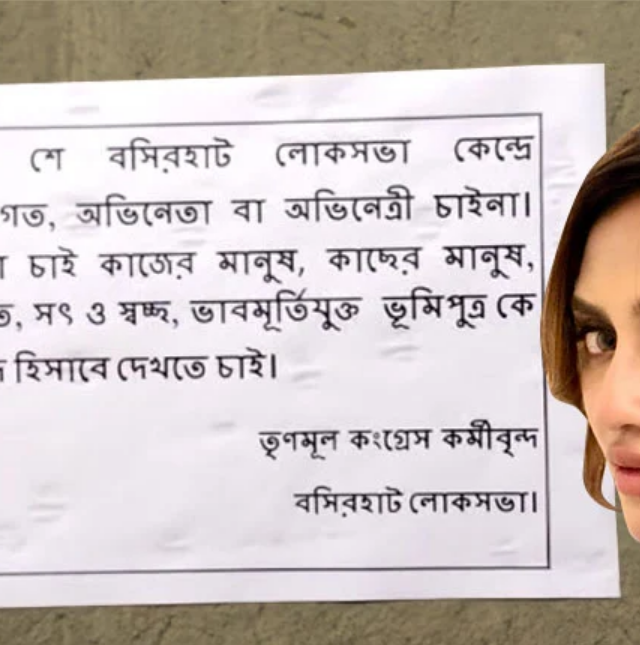 শে বসিরহাট লোকসভা কেন্দ্রে
গত, অভিনেতা বা অভিনেত্রী চাইনা।
চাই কাজের মানুষ, কাছের মানুষ,
সৎ ও স্বচ্ছ, ভাবমূর্তিযুক্ত ভূমিপুত্র কে
হিসাবে দেখতে চাই।
তৃণমূল কংগ্রেস কর্মীবৃন্দ
বসিরহাট লোকসভা।